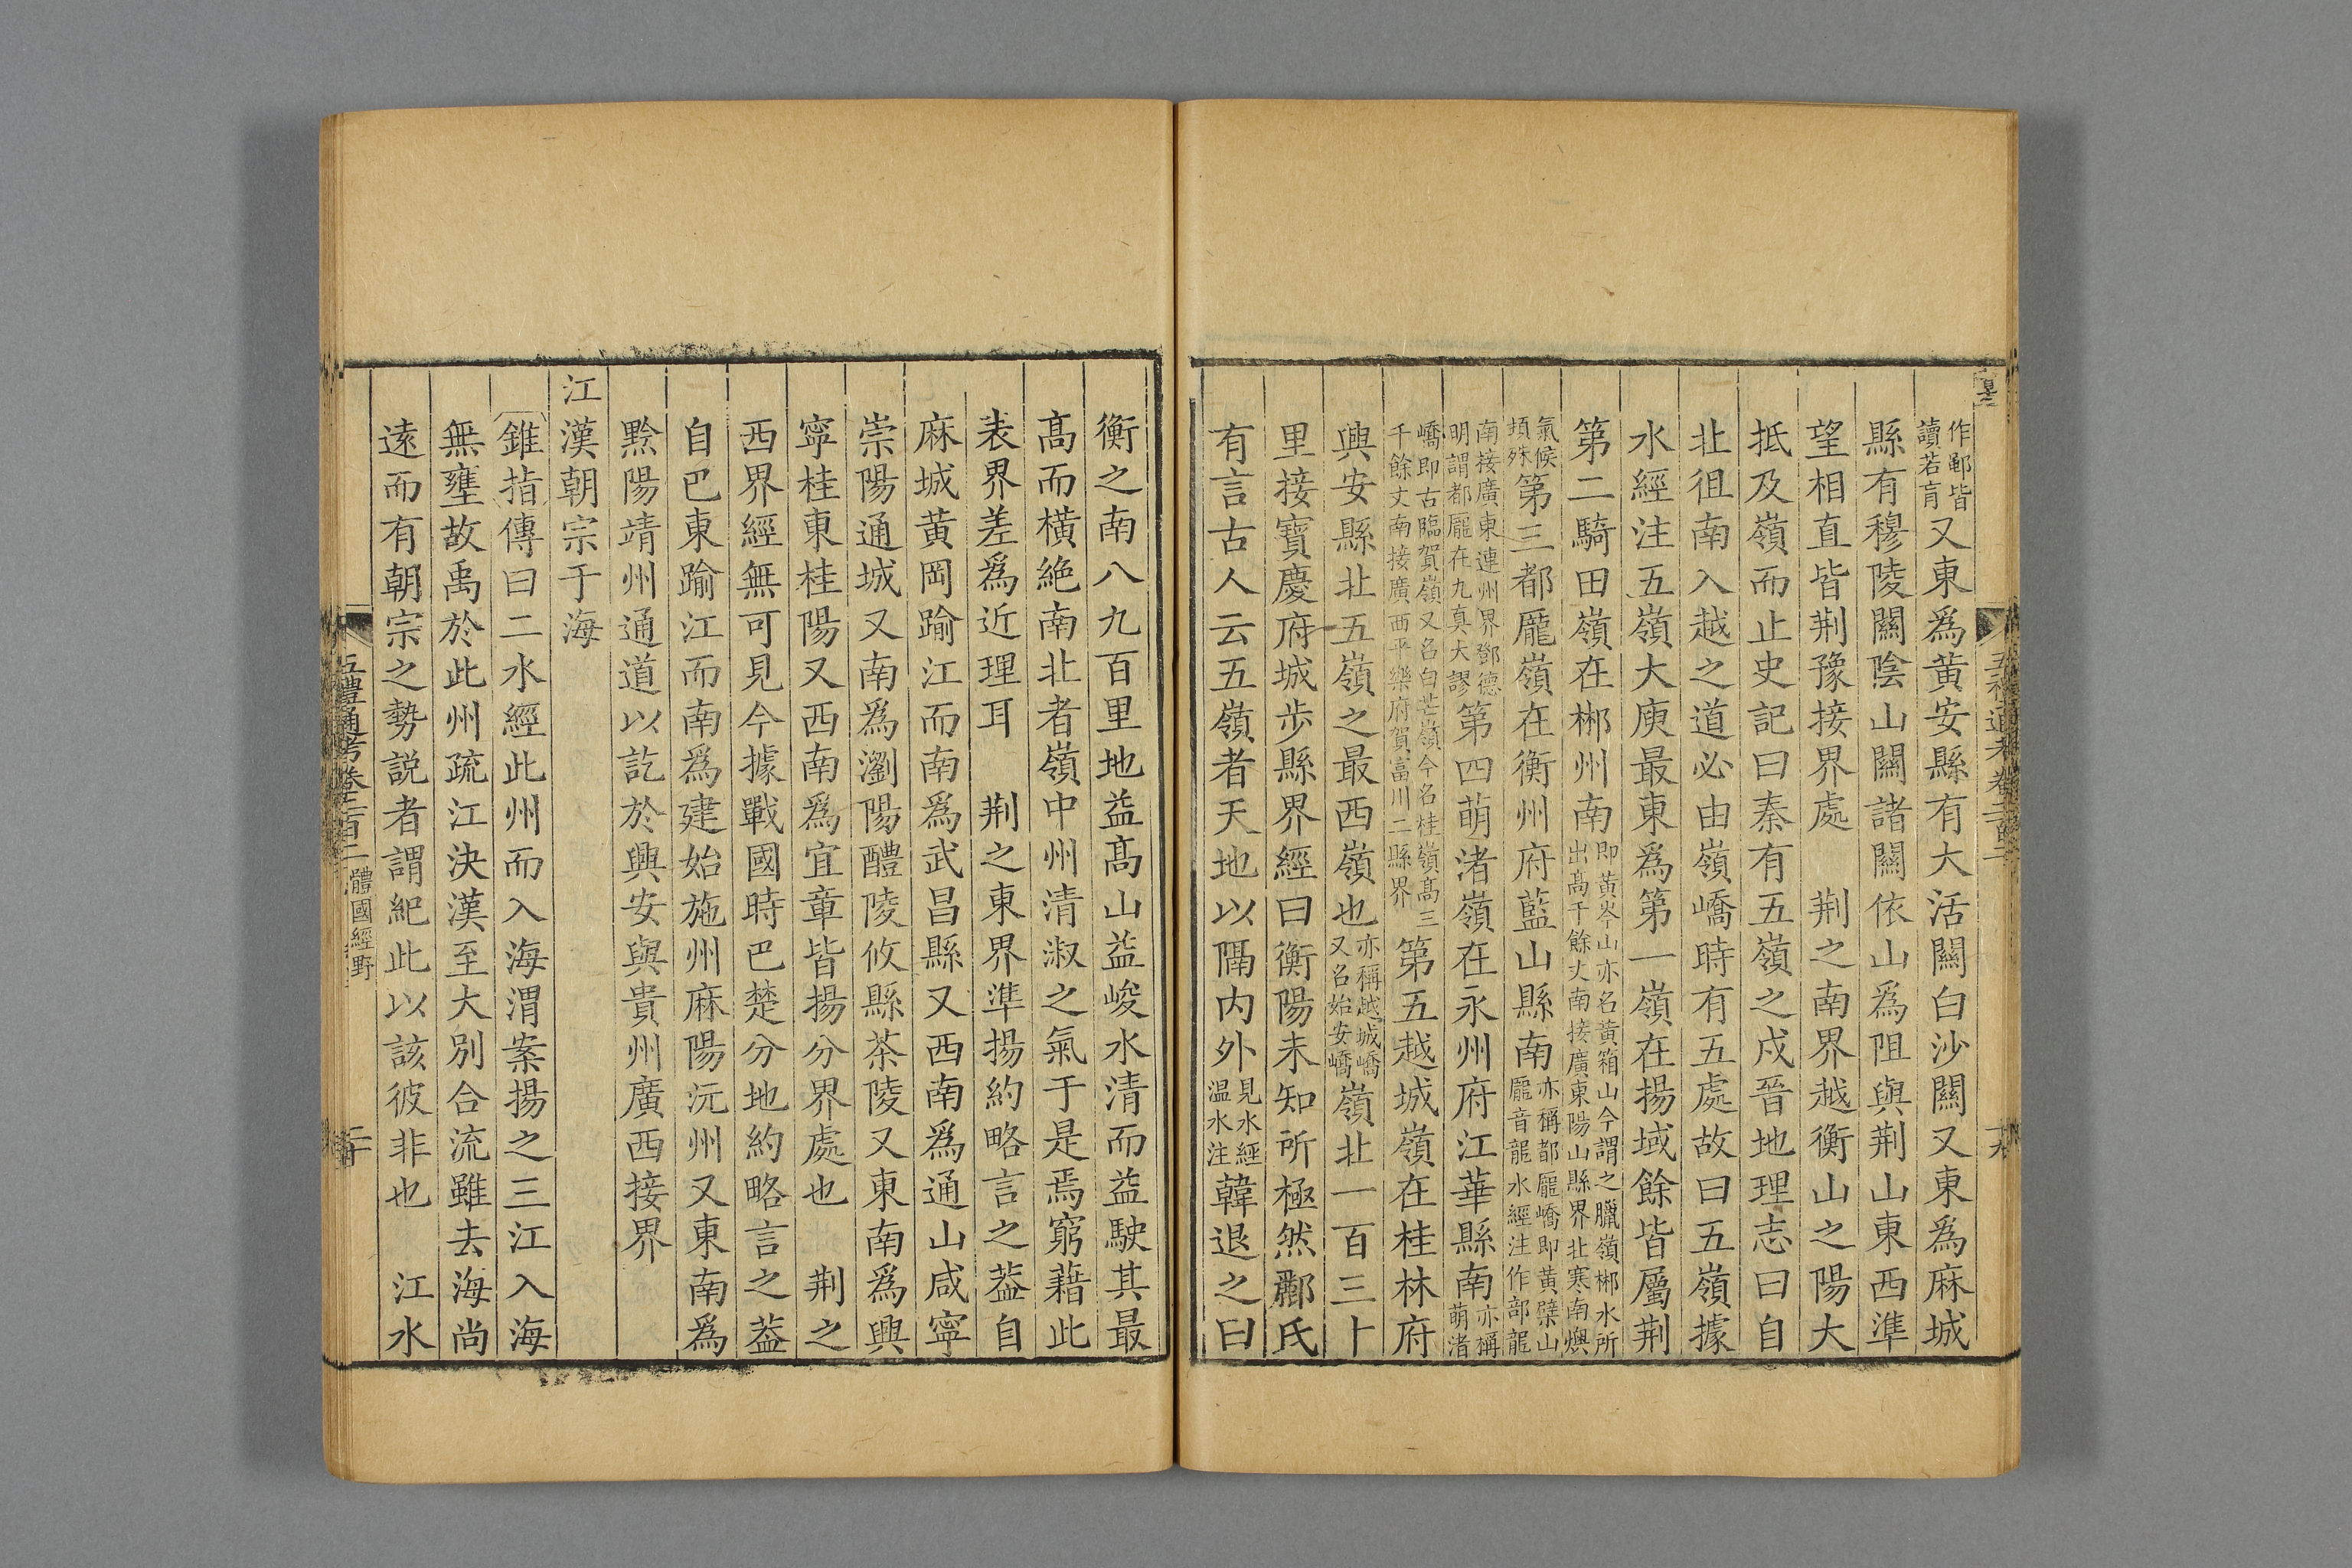 作鄳皆讀若盲又東爲黄安縣有大活關白沙關又東爲麻城
縣有穆陵關陰山關諸關依山爲阻與荆山東西準
望相直皆荆豫接界處　荆之南界越衡山之陽大
抵及嶺而止史記曰秦有五嶺之戍晉地理志曰自
北徂南入越之道必由嶺嶠時有五處故曰五嶺據
水經注五嶺大庾最東爲第一嶺在揚域餘皆屬荆
第二騎田嶺在郴州南即黄岑山亦名黄箱山今謂之臘嶺郴水所出高千餘丈南接廣東陽山縣界北寒南燠
氣候頃殊第三都龎嶺在衡州府藍山縣南亦稱都龎嶠即黄蘖山龎音龍水經注作部龍
南接廣東連州界鄧德明謂都龎在九真大謬第四萌渚嶺在永州府江華縣南亦稱萌渚
嶠即古臨賀嶺又名白芒嶺今名桂嶺高三千餘丈南接廣西平樂府賀富川二縣界第五越城嶺在桂林府
興安縣北五嶺之最西嶺也亦稱越城嶠又名始安嶠嶺北一百三十
里接寶慶府城步縣界經曰衡陽未知所極然酈氏
有言古人云五嶺者天地以隔内外見水經温水注韓退之曰
五禮通考卷二百二
十九
衡之南八九百里地益高山益峻水清而益駛其最
高而横絶南北者嶺中州清淑之氣于是焉窮藉此
表界差爲近理耳　荆之東界準揚約略言之葢自
麻城黄岡踰江而南爲武昌縣又西南爲通山咸寧
崇陽通城又南爲瀏陽醴陵攸縣茶陵又東南爲興
寧桂東桂陽又西南爲宜章皆揚分界處也　荆之
西界經無可見今據戰國時巴楚分地約略言之葢
自巴東踰江而南爲建始施州麻陽沅州又東南爲
黔陽靖州通道以訖於興安與貴州廣西接界
江漢朝宗于海
錐指傳曰二水經此州而入海渭案揚之三江入海
無壅故禹於此州疏江決漢至大别合流雖去海尚
遠而有朝宗之勢説者謂紀此以該彼非也　江水
五禮通考卷二百二　體國經野
二十